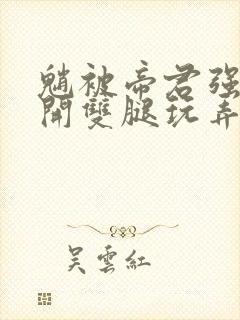 魈被帝君强
開雙腿玩弄
吴雲紅